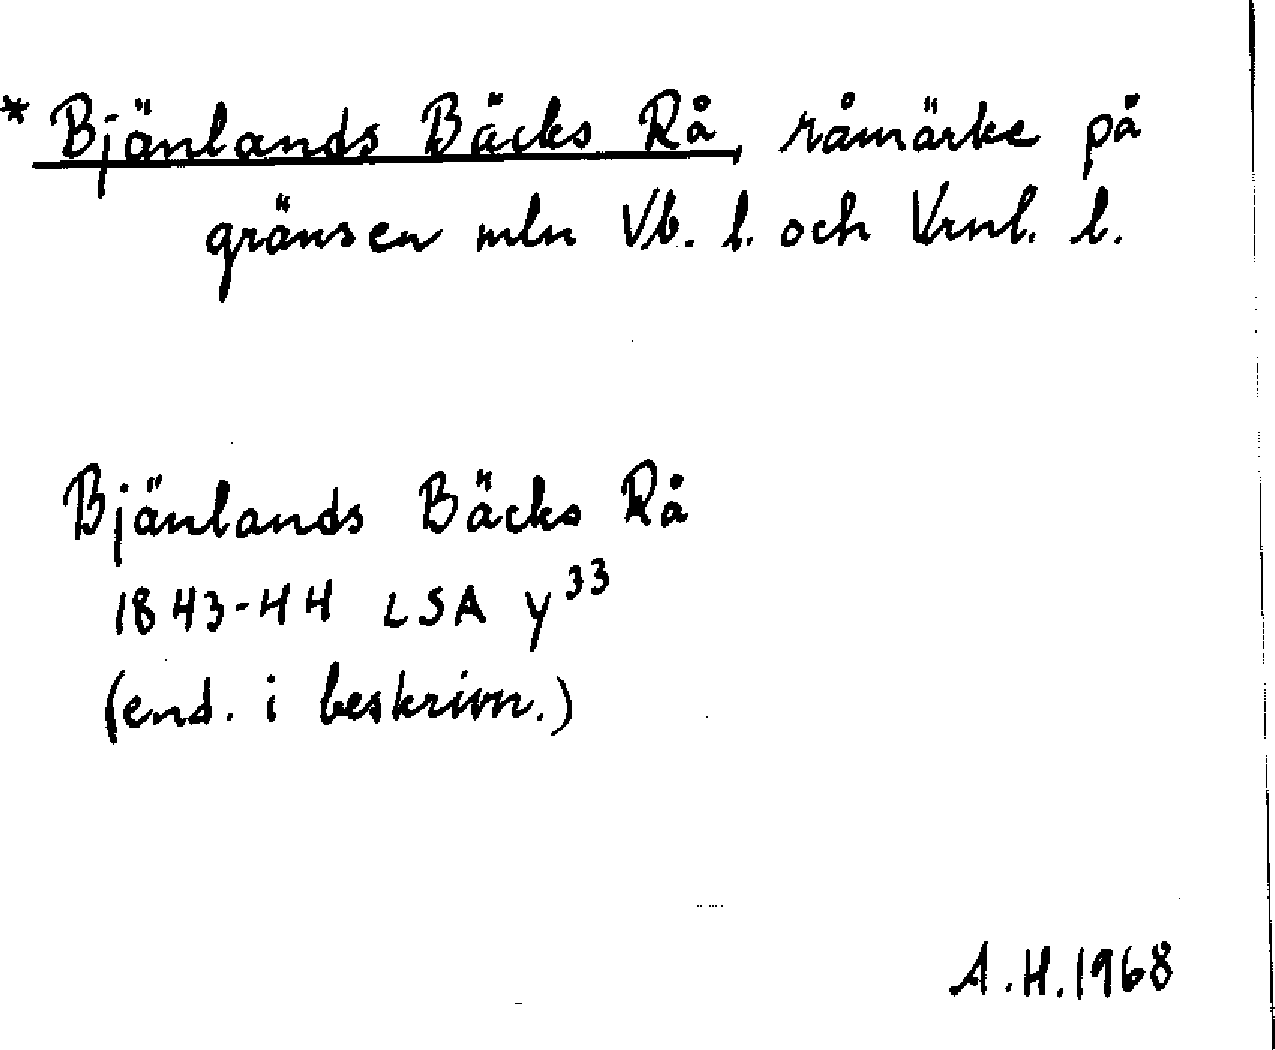 * Bjänlands Bäcks Rå, råmärke på
gränsen mln Vb. l. och Vrml. l.
Bjänlands Bäcks Rå
1843-44 LSA y³³
(end. i beskrivn.)
A.H.1968